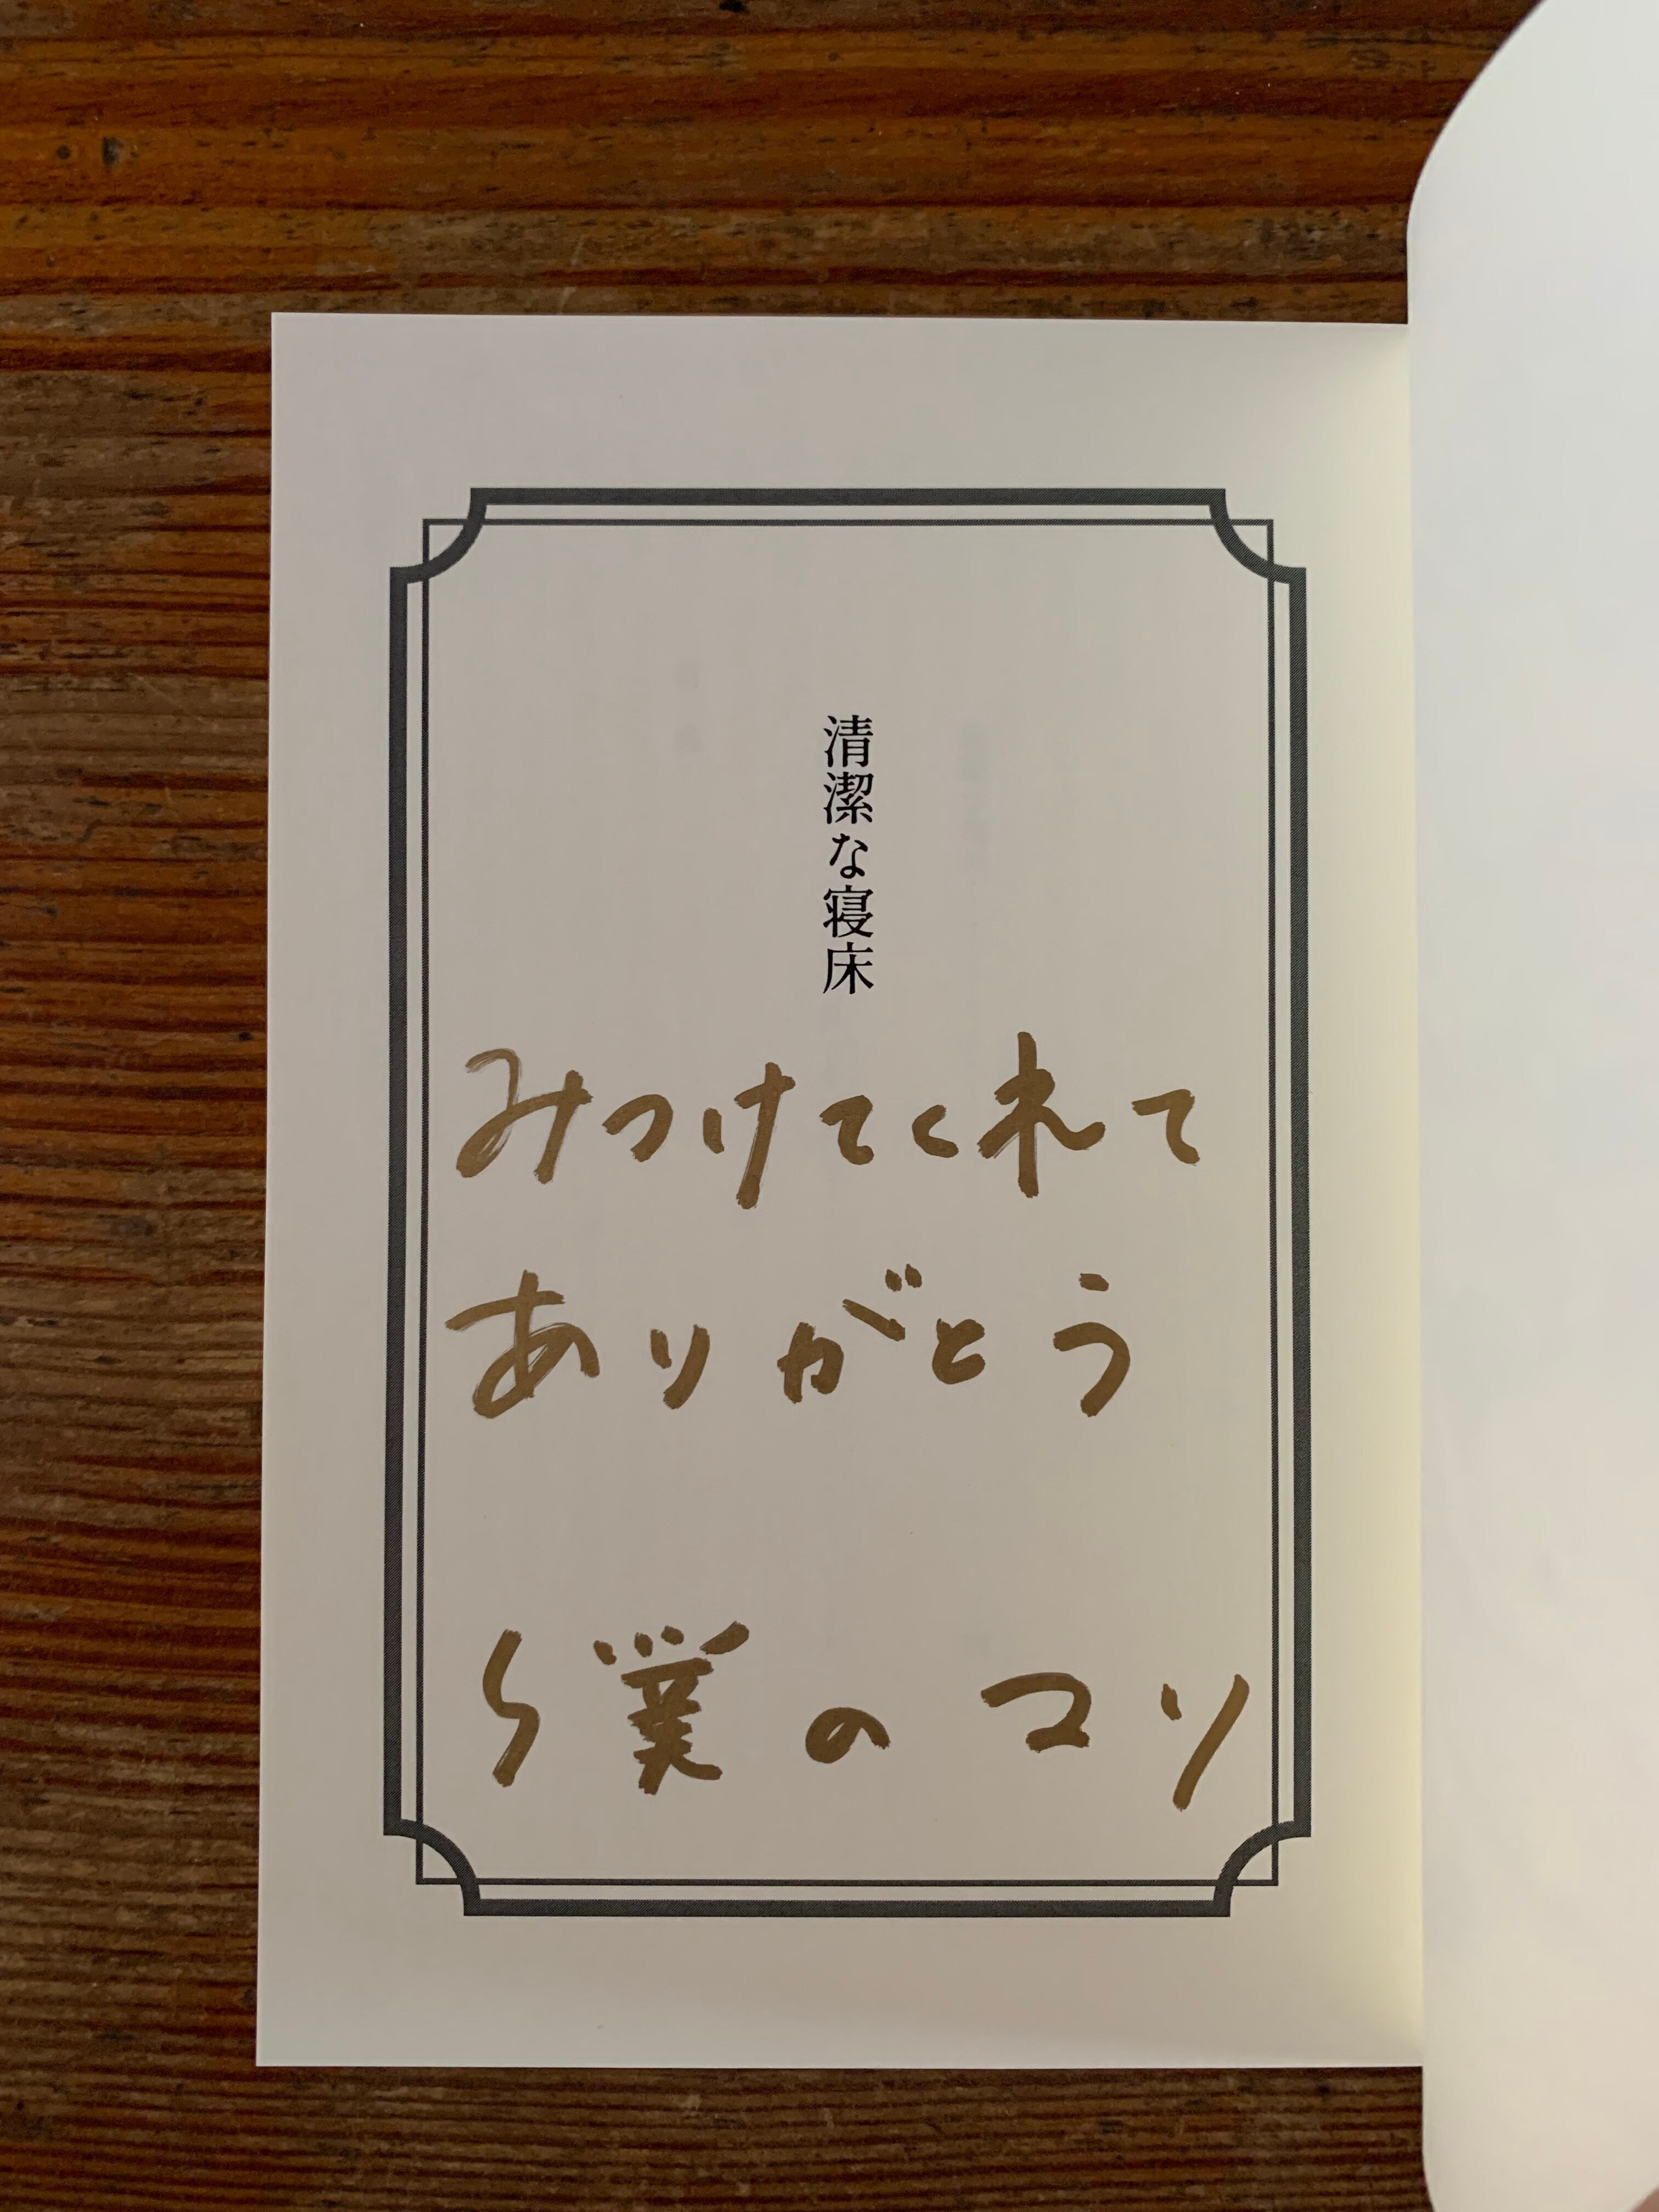 清潔な寝床
みつけてくれて
ありがとう
僕のマリ